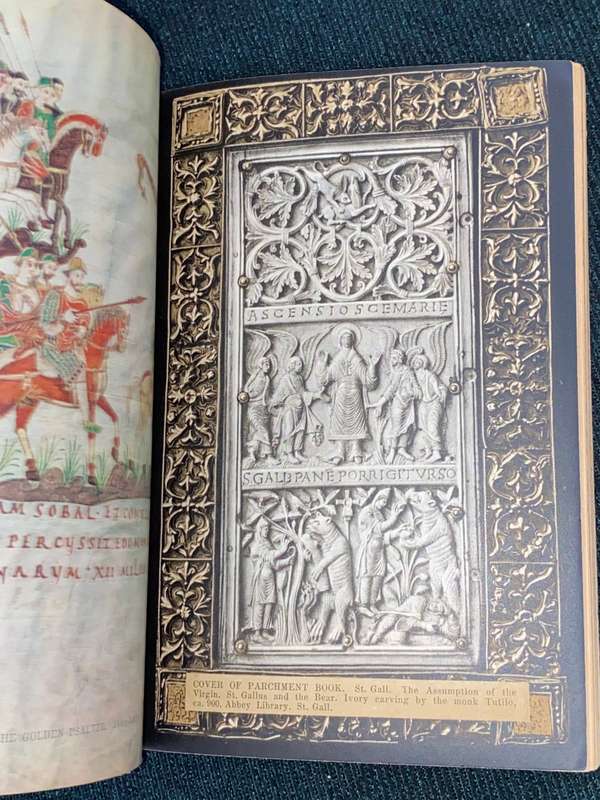 AM SOBAL · ET CONV
PERCVSSIT EDOM
NARVM · XII MIL
THE GOLDEN PSALTER,
ASCENSIO SCE MARIE
S. GALL PANE PORRIGIT VRSO
COVER OF PARCHMENT BOOK. St. Gall. The Assumption of the
Virgin. St. Gallus and the Bear. Ivory carving by the monk Tutilo,
ca. 900, Abbey Library, St. Gall.